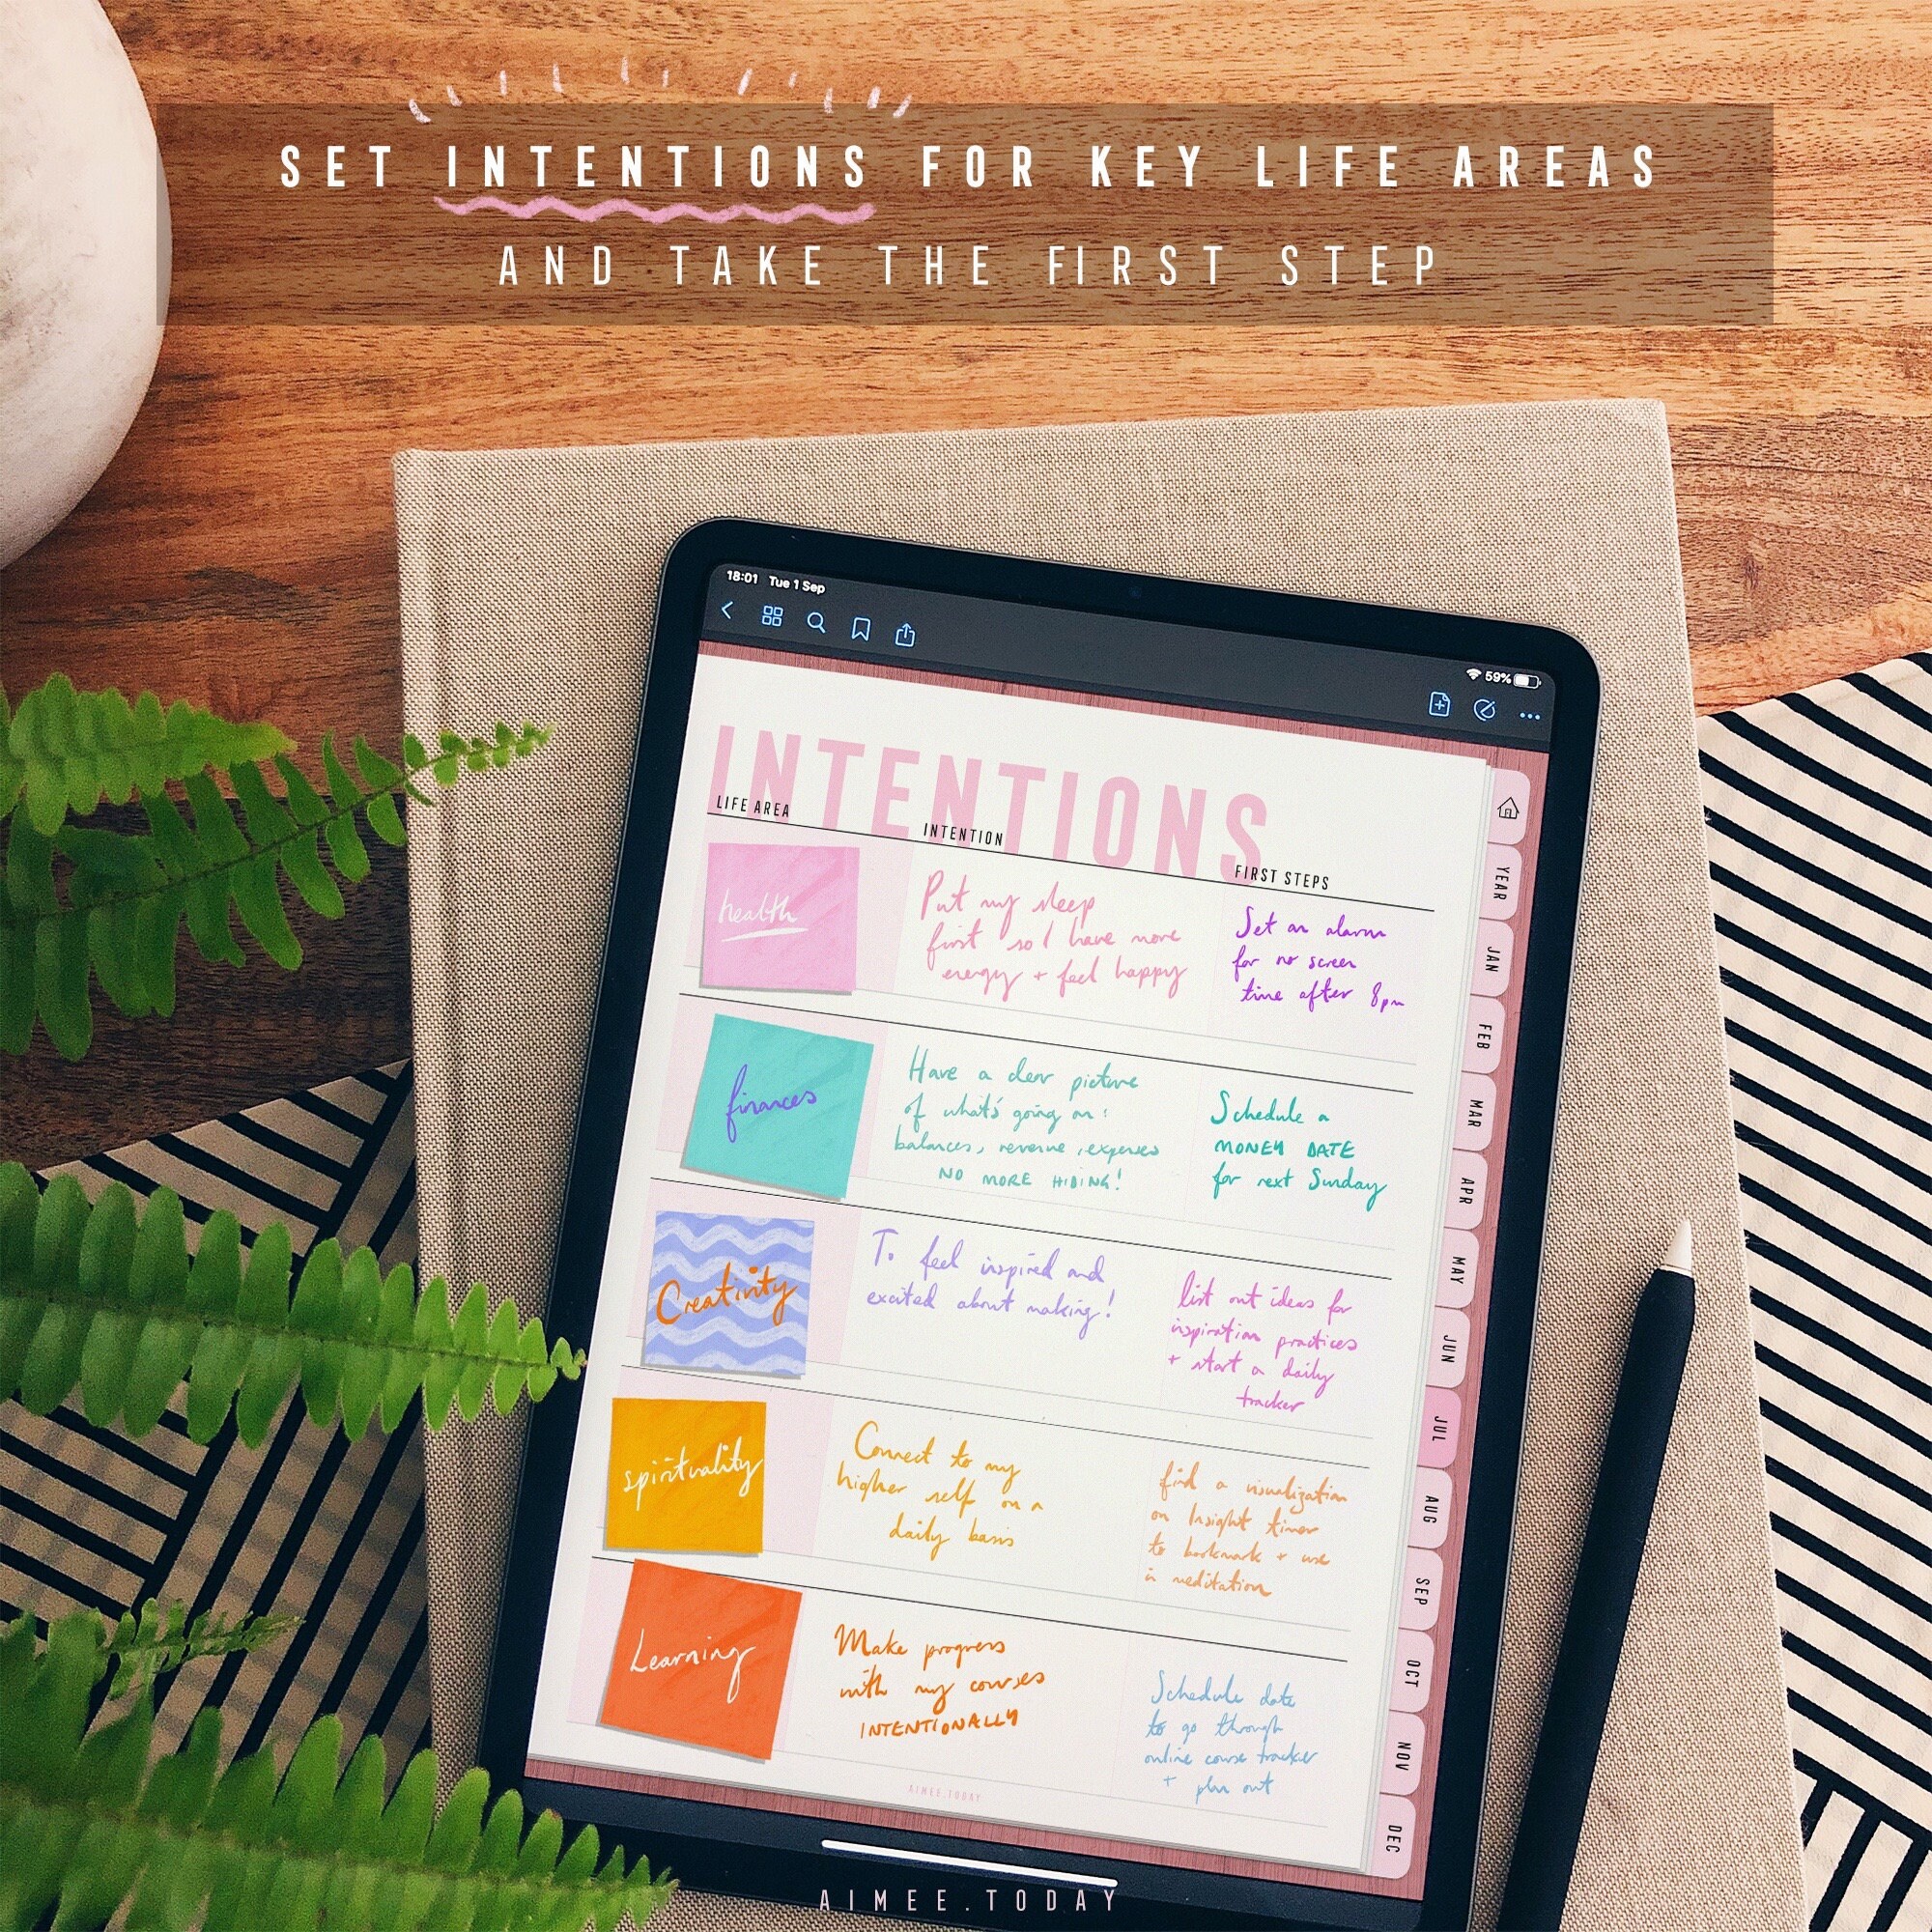 SET INTENTIONS FOR KEY LIFE AREAS
AND TAKE THE FIRST STEP
18:01 Tue 1 Sep
59%
INTENTIONS
LIFE AREA
INTENTION
FIRST STEPS
health
Put my sleep
first so I have more
energy + feel happy
Set an alarm
for no screen
time after 8pm
finances
Have a clear picture
of what's going on:
balances, revenue, expenses
NO MORE HIDING!
Schedule a
MONEY DATE
for next Sunday
Creativity
To feel inspired and
excited about making!
list out ideas for
inspiration practices
+ start a daily
tracker
spirituality
Connect to my
higher self on a
daily basis
find a visualization
on Insight timer
to bookmark + use
in meditation
Learning
Make progress
with my courses
INTENTIONALLY
Schedule date
to go through
online course tracker
+ plan out
YEAR
JAN
FEB
MAR
APR
MAY
JUN
JUL
AUG
SEP
OCT
NOV
DEC
AIMEE.TODAY
AIMEE.TODAY